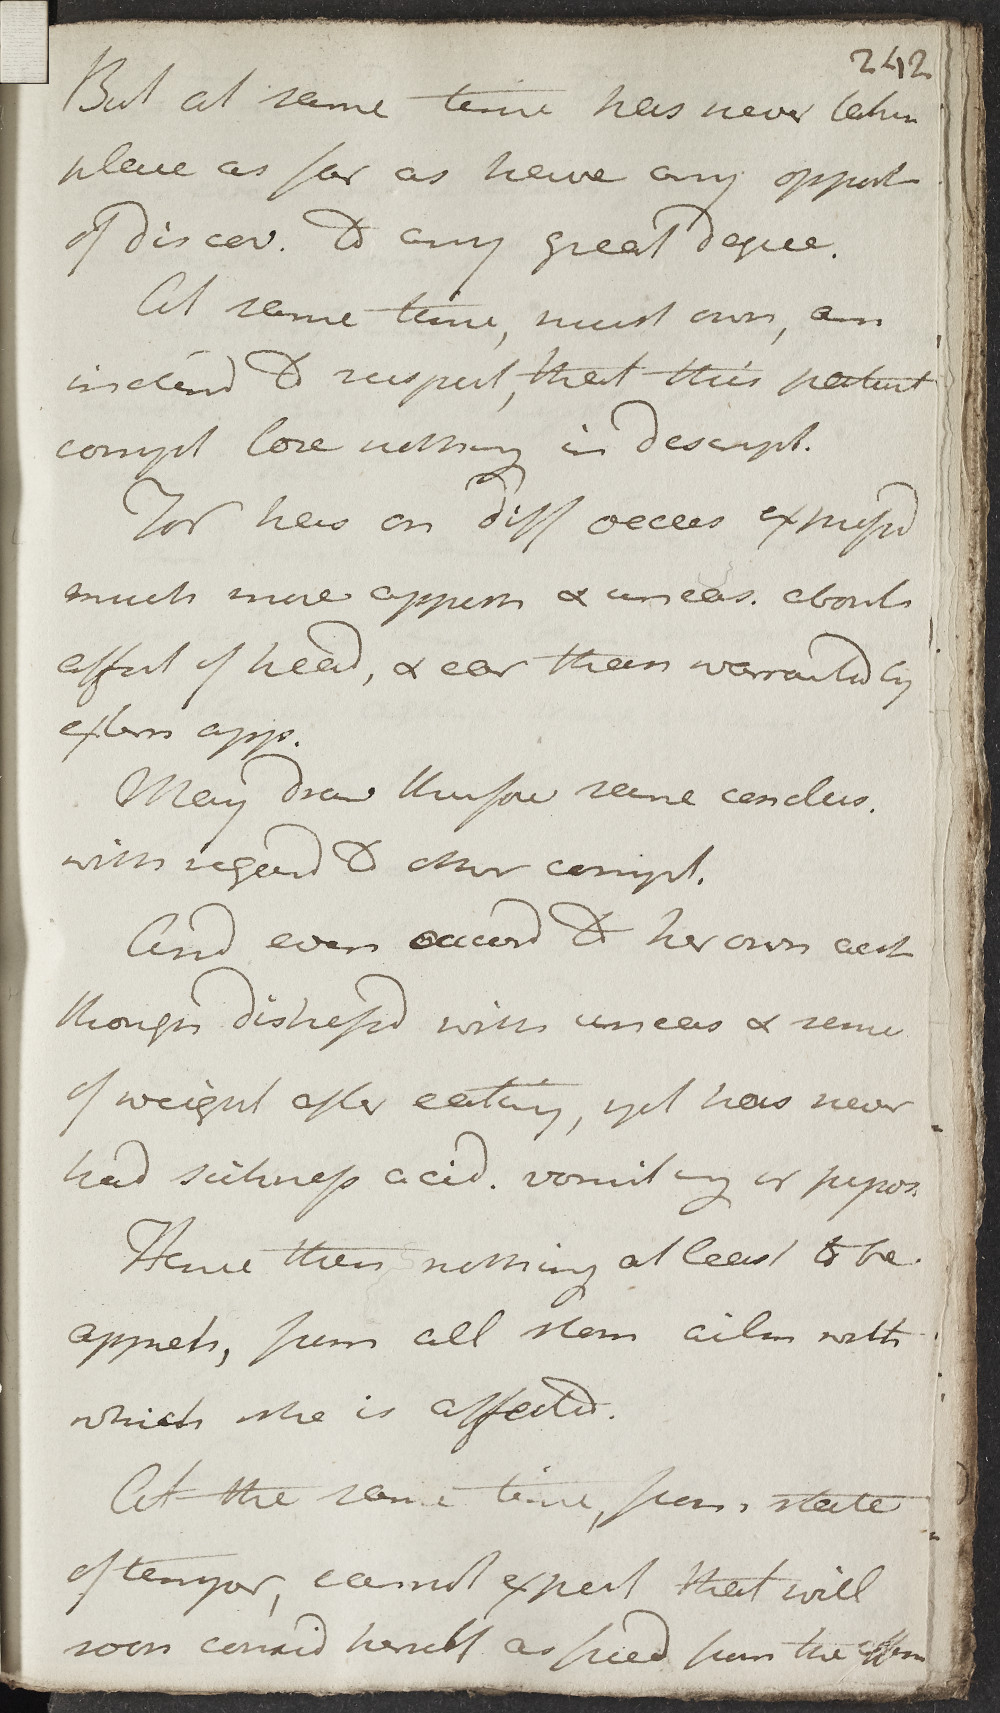 242
But at same time has never taken
place as far as have any opport
of discov. to any great degree.
At same time, must own, am
inclind to suspect, that this patient
compt lose nothing in descript.
For has on diff occas expressd
much more appren & uneas. about
affect of head, & ear than warranted by
extern apps.
May draw therefore same conclus.
with regard to other compt.
And even accord to her own acct
though distressd with uneas & sense
of weight after eating, yet has never
had sickness acid. vomiting or pypos.
Hence then nothing at least to be
appreh, from all stom ailm with
which she is affected.
At the same time, from state
of temper, cannot expect that will
soon consid herself as freed from the affem